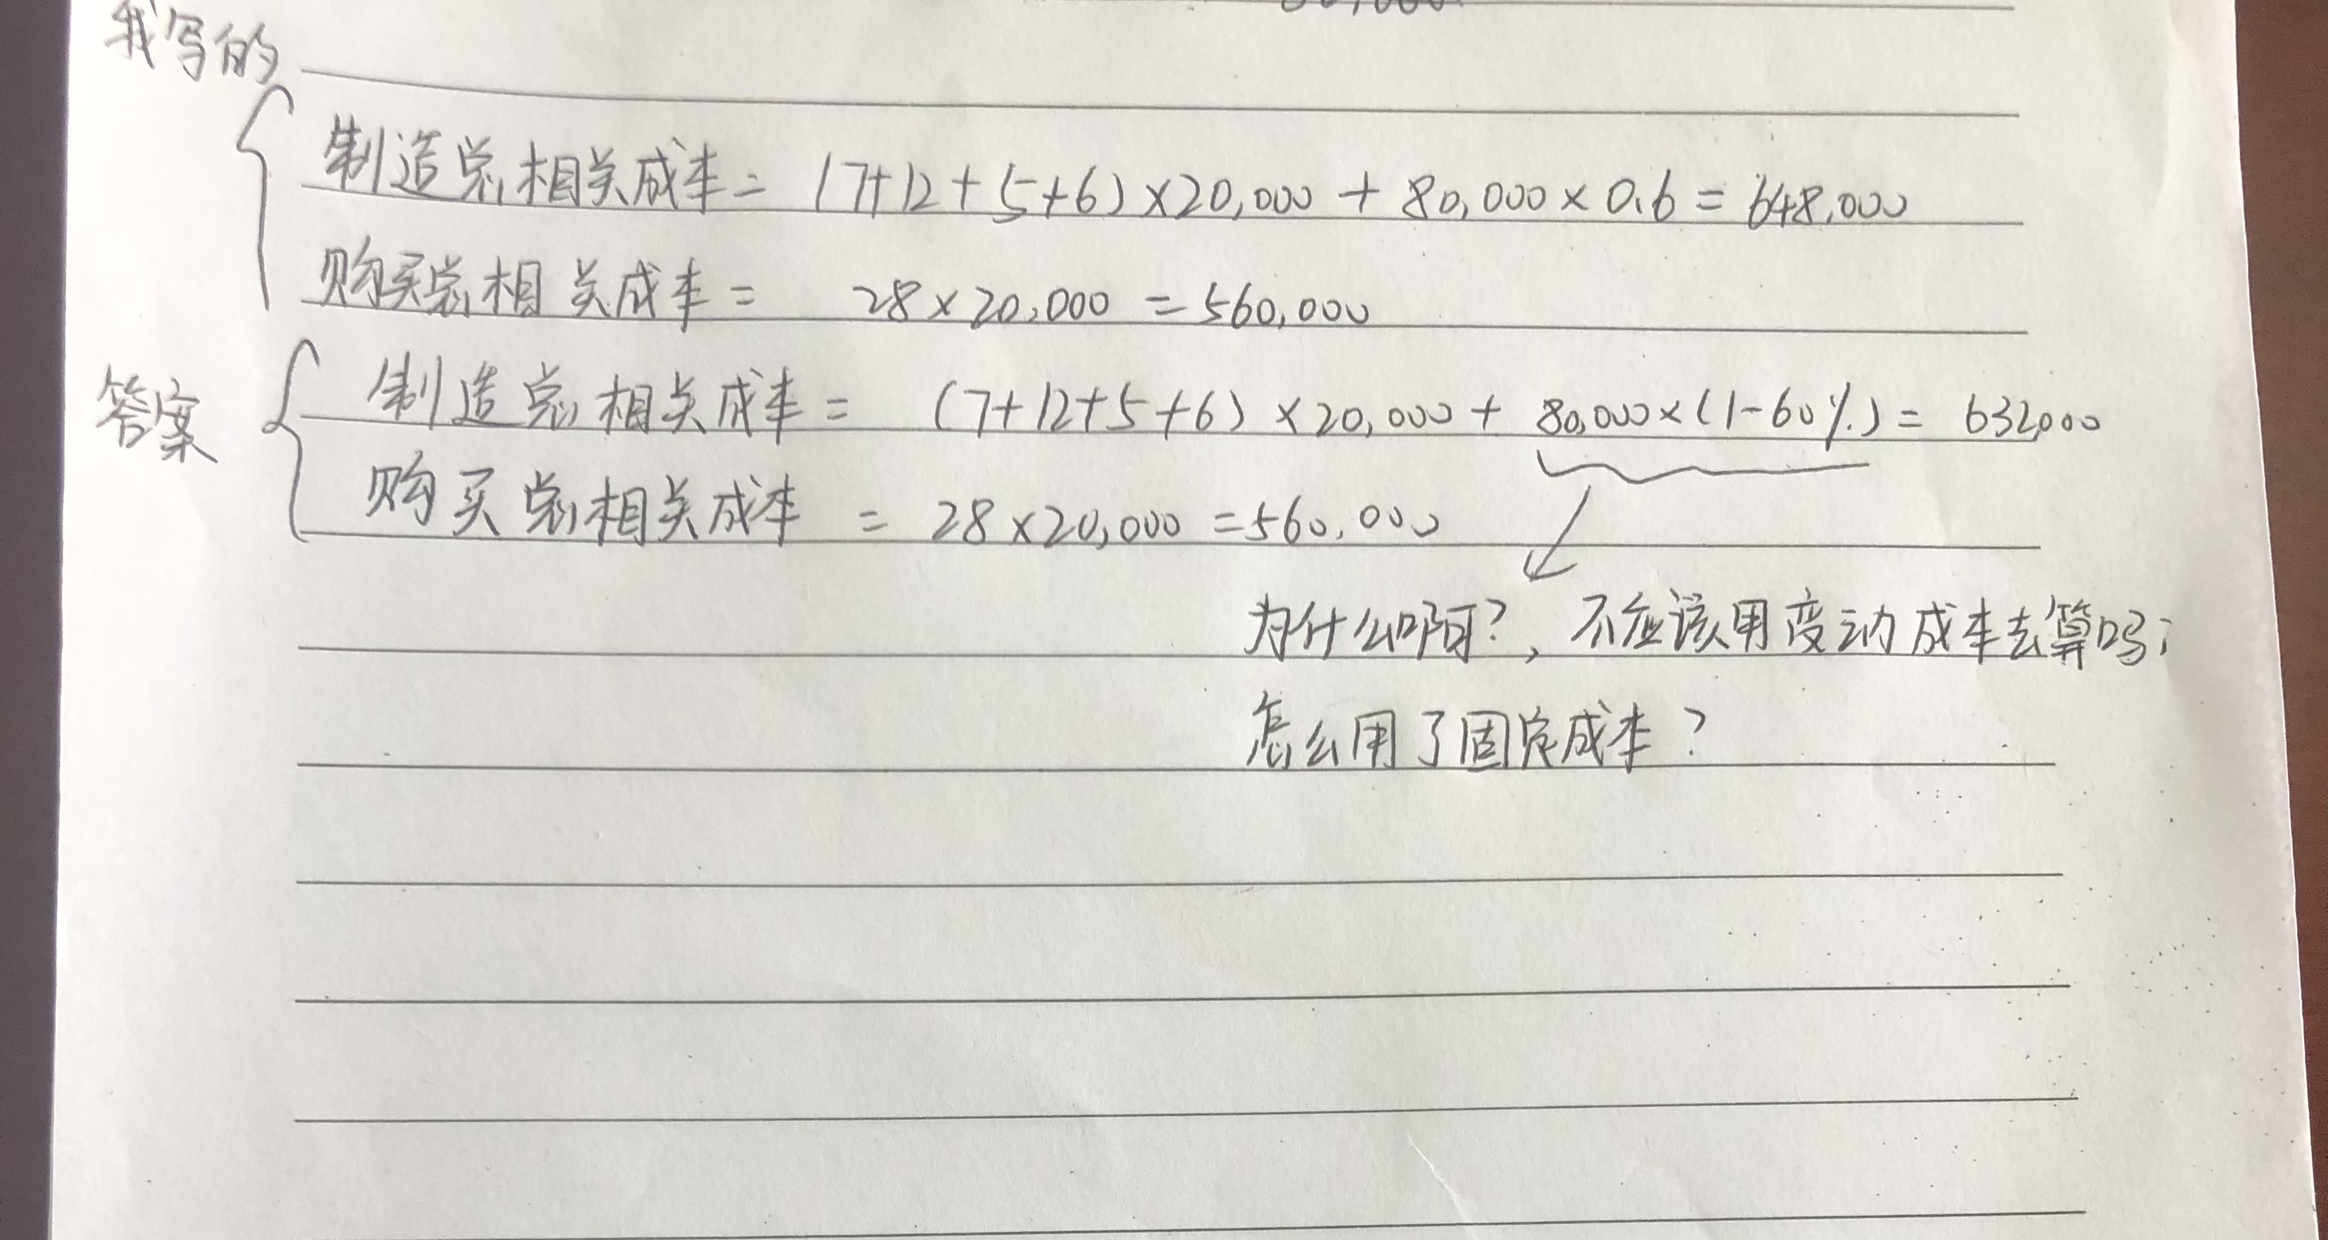 我写的
制造总相关成本 = (7+12+5+6)×20,000 + 80,000×0.6 = 648,000
购买总相关成本 = 28×20,000 = 560,000
答案
制造总相关成本 = (7+12+5+6)×20,000 + 80,000×(1-60%) = 632,000
购买总相关成本 = 28×20,000 = 560,000
为什么啊?,不应该用变动成本去算吗;
怎么用了固定成本?